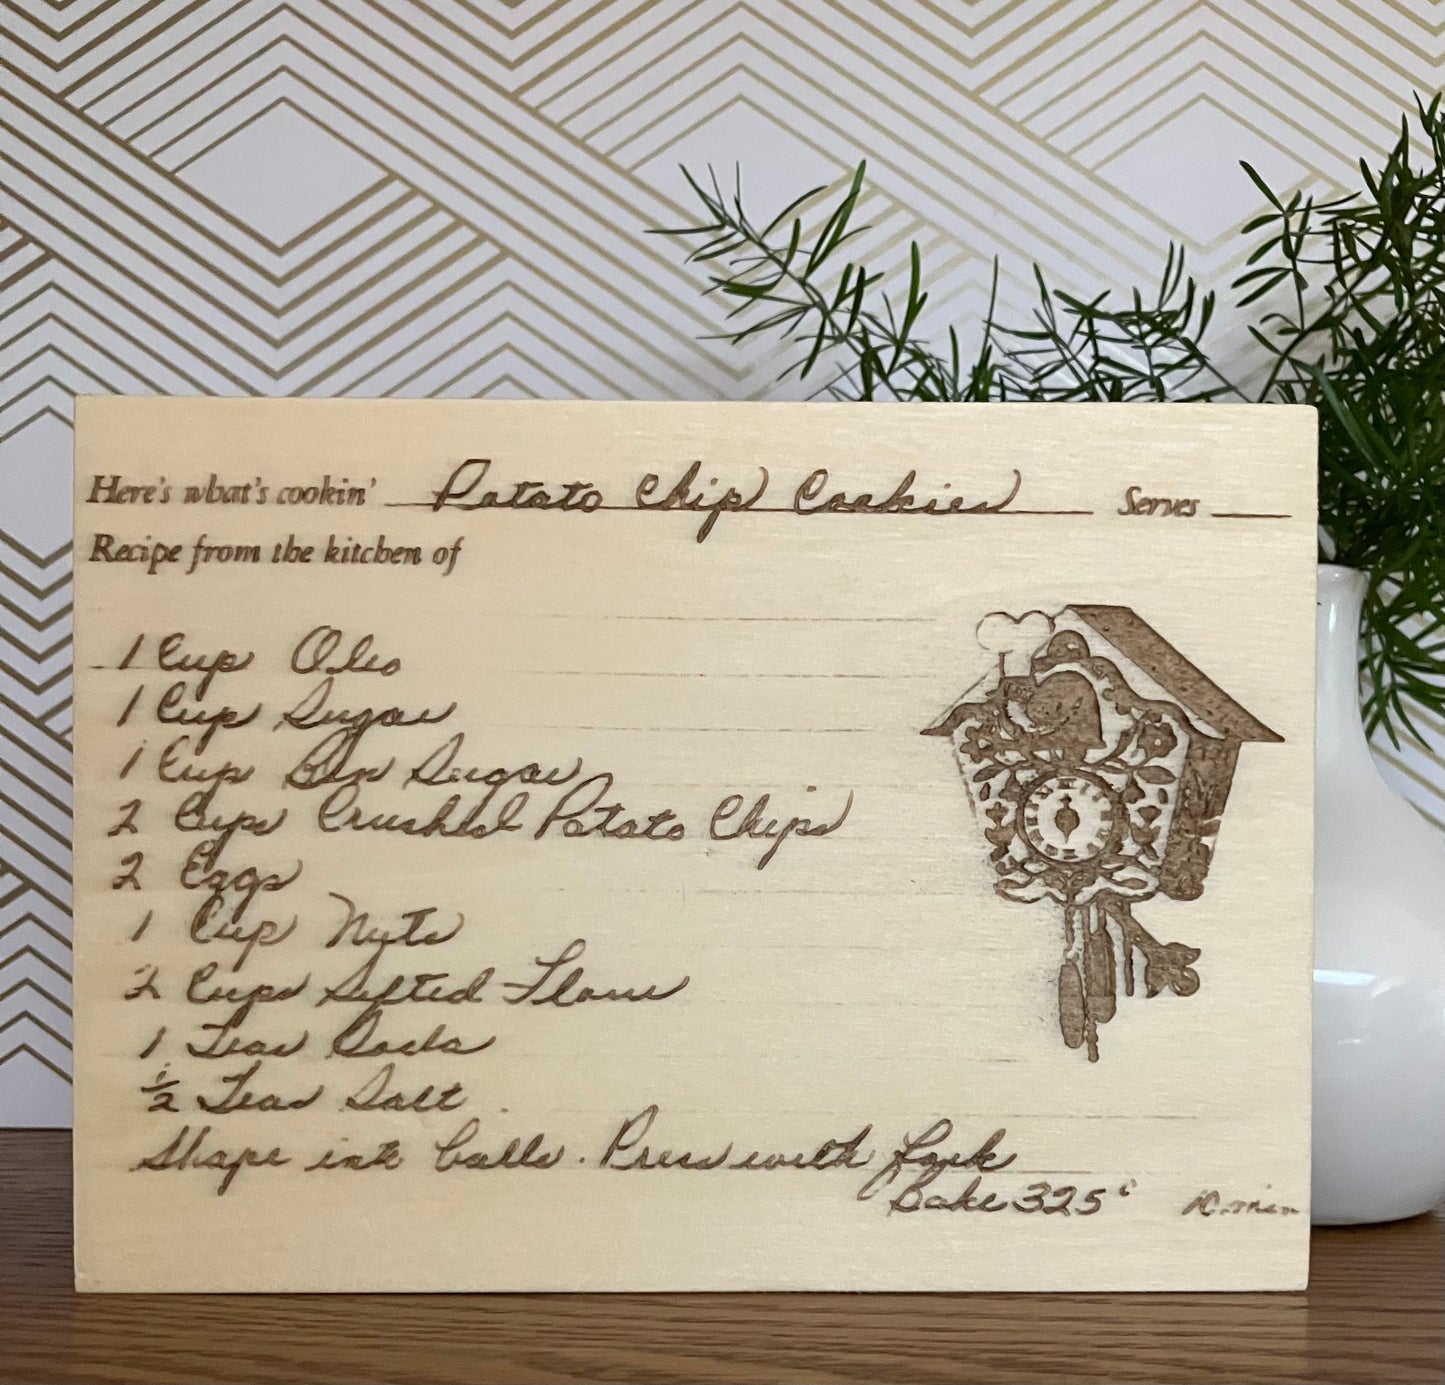 Here's what's cookin' Potato Chip Cookies Serves
Recipe from the kitchen of
1 Cup Oleo
1 Cup Sugar
1 Cup Brn Sugar
2 Cups Crushed Potato Chips
2 Eggs
1 Cup Nuts
2 Cups Sifted Flour
1 Teas Soda
1/2 Teas Salt.
Shape into balls. Press with fork
Bake 325° 10 min